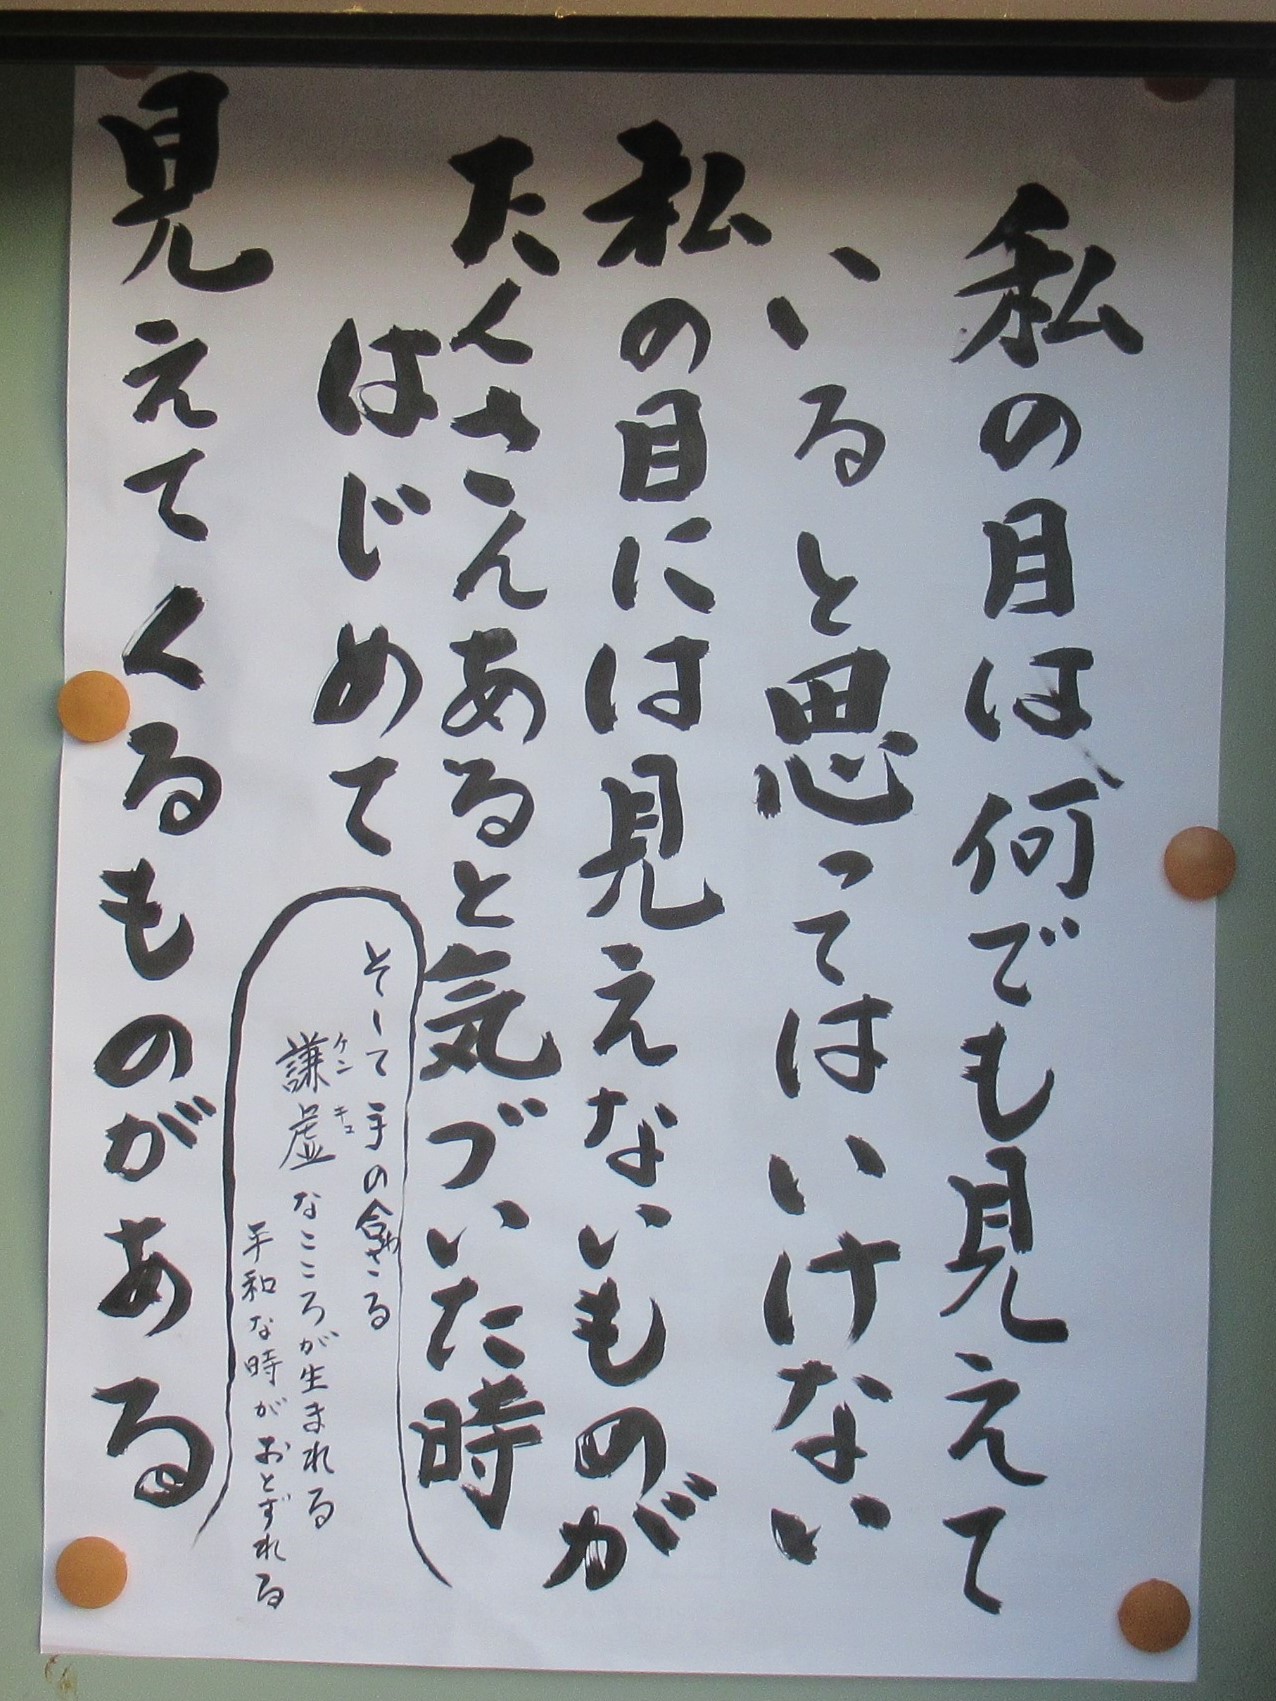 私の目は何でも見えて
いると思ってはいけない
私の目には見えないものが
たくさんあると気づいた時
はじめて
見えてくるものがある
そして手の合わさる
謙虚なこころが生まれる
ケン キョ
平和な時がおとずれる